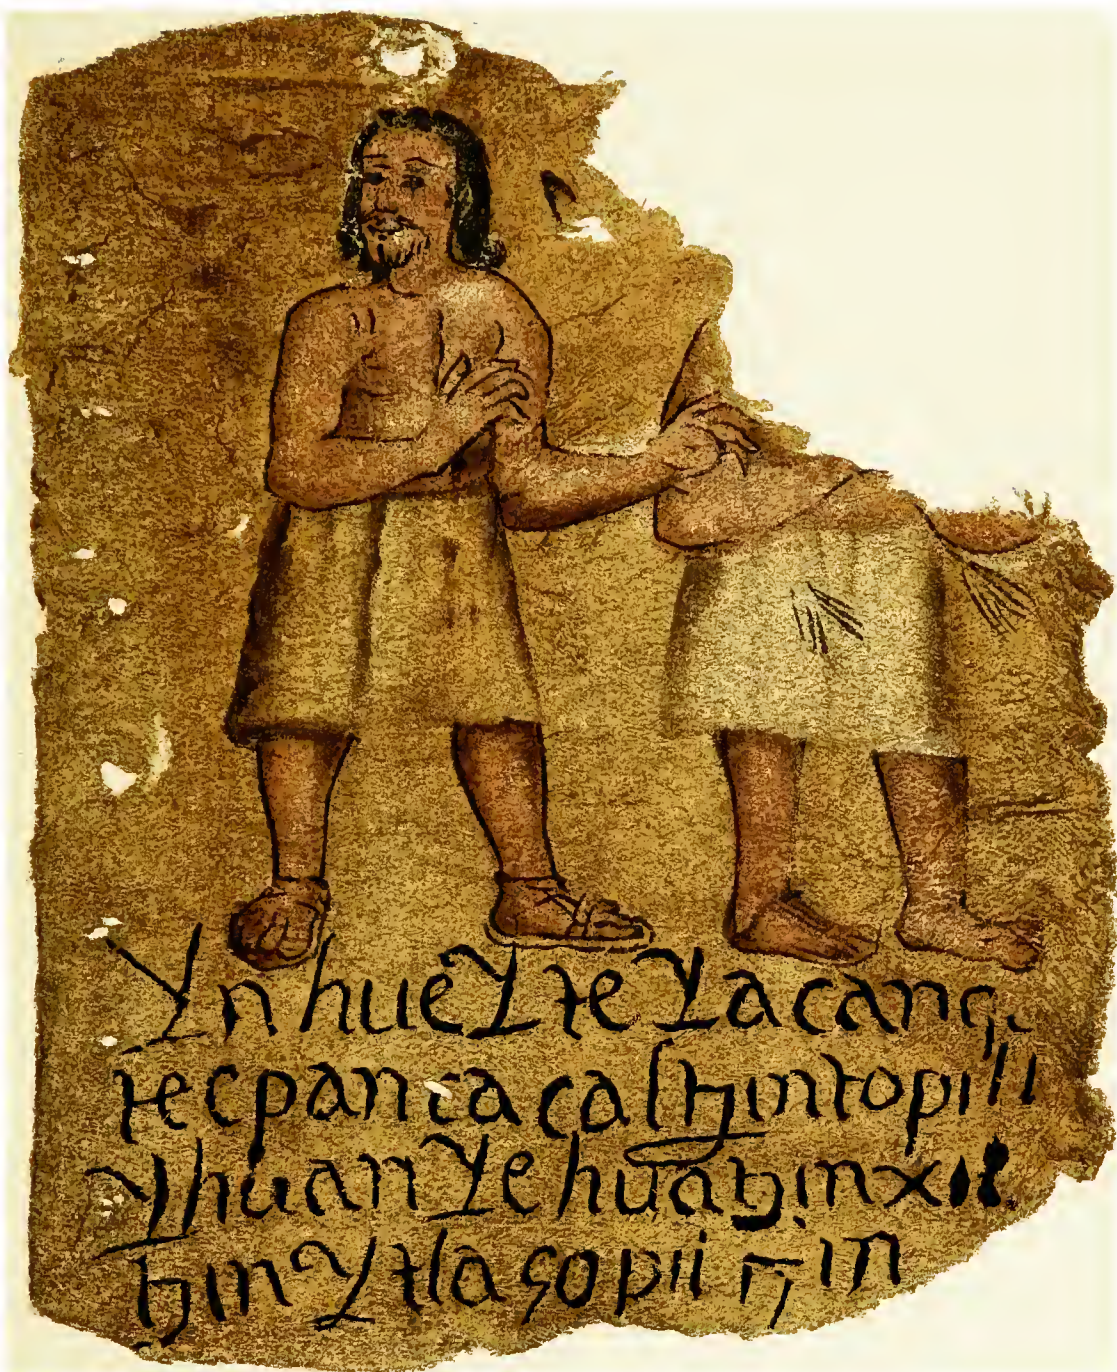 Yn hueY te Yacanq.
tecpan ca ca ltzin topill
Yhuan Yehuatzin
tzin Ytlaçopiltzin